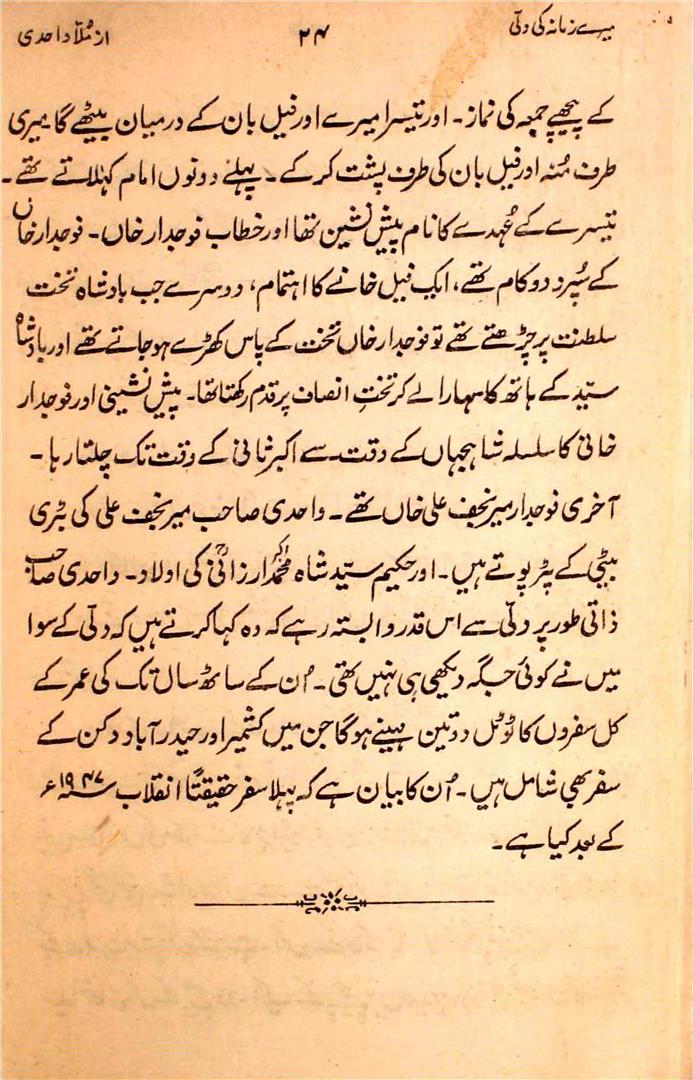 میرے زمانہ کی دلّی ۲۴ از مُلّا واحدی
کے پیچھے جمعہ کی نماز۔ اور تیسرا میرے اور فیل بان کے درمیان بیٹھے گا میری
طرف مُنہ اور فیل بان کی طرف پشت کر کے۔ پہلے دونوں امام کہلاتے تھے۔
تیسرے کے عُہدے کا نام پیش نشین تھا اور خطاب فوجدار خاں۔ فوجدار خاں
کے سُپرد دو کام تھے، ایک فیل خانے کا اہتمام، دوسرے جب بادشاہ تخت
سلطنت پر چڑھتے تھے تو فوجدار خاں تخت کے پاس کھڑے ہو جاتے تھے اور بادشاہ
سیّد کے ہاتھ کا سہارا لے کر تختِ انصاف پر قدم رکھتا تھا۔ پیش نشینی اور فوجدار
خانی کا سلسلہ شاہجہاں کے وقت سے اکبر ثانی کے وقت تک چلتا رہا۔
آخری فوجدار میر نجف علی خاں تھے۔ واحدی صاحب میر نجف علی کی بڑی
بیٹی کے پڑپوتے ہیں۔ اور حکیم سیّد شاہ محمد اکبر ارزانیؒ کی اولاد۔ واحدی صاحب
ذاتی طور پر دلّی سے اس قدر وابستہ رہے کہ وہ کہا کرتے ہیں کہ دلّی کے سوا
میں نے کوئی جگہ دیکھی ہی نہیں تھی۔ اُن کے ساٹھ سال تک کی عمر کے
کل سفروں کا ٹوٹل دو تین مہینے ہوگا جن میں کشمیر اور حیدرآباد دکن کے
سفر بھی شامل ہیں۔ اُن کا بیان ہے کہ پہلا سفر حقیقتًا انقلاب سنہ ۱۹۴۷ء
کے بعد کیا ہے۔